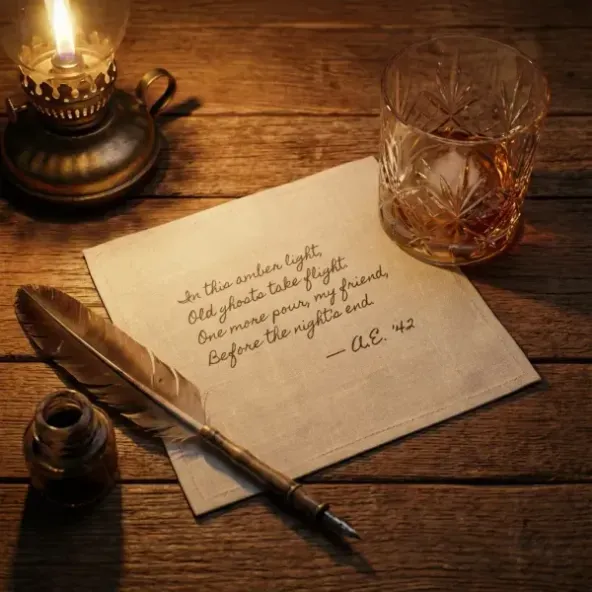 In this amber light,
Old ghosts take flight.
One more pour, my friend,
Before the night's end
— A.E. '42